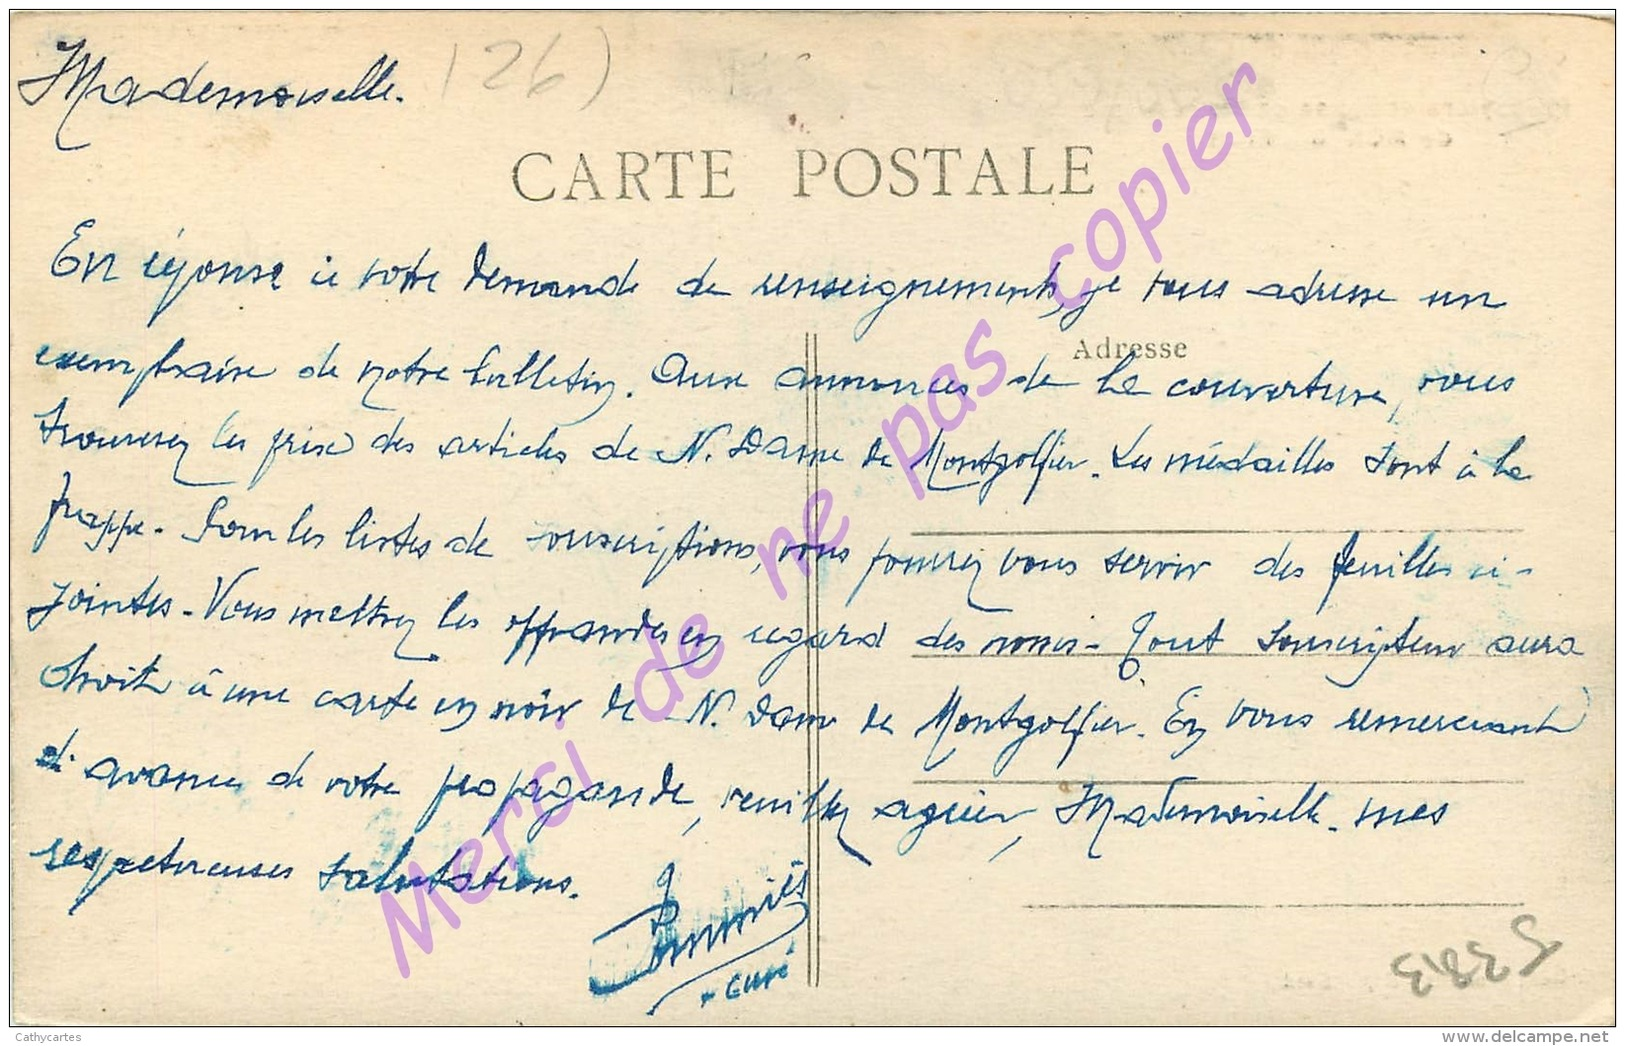 Mademoiselle.
126)
CARTE POSTALE
En réponse à votre demande de renseignements, je vous adresse un
Adresse
exemplaire de notre bulletin. Aux annonces de la couverture, vous
trouverez les prix des articles de N. Dame de Montgolfier. Les médailles sont à la
frappe. Pour les listes de souscriptions, vous pourrez vous servir des feuilles ci-
jointes. Vous mettrez les offrandes en regard des noms. Tout souscripteur aura
droit à une carte en noir de N. Dame de Montgolfier. En vous remerciant
d'avance de votre propagande, veuillez agréer, Mademoiselle, mes
respectueuses salutations.
curé
Mersi de ne pas copier
Cathycartes
www.delcampe.net